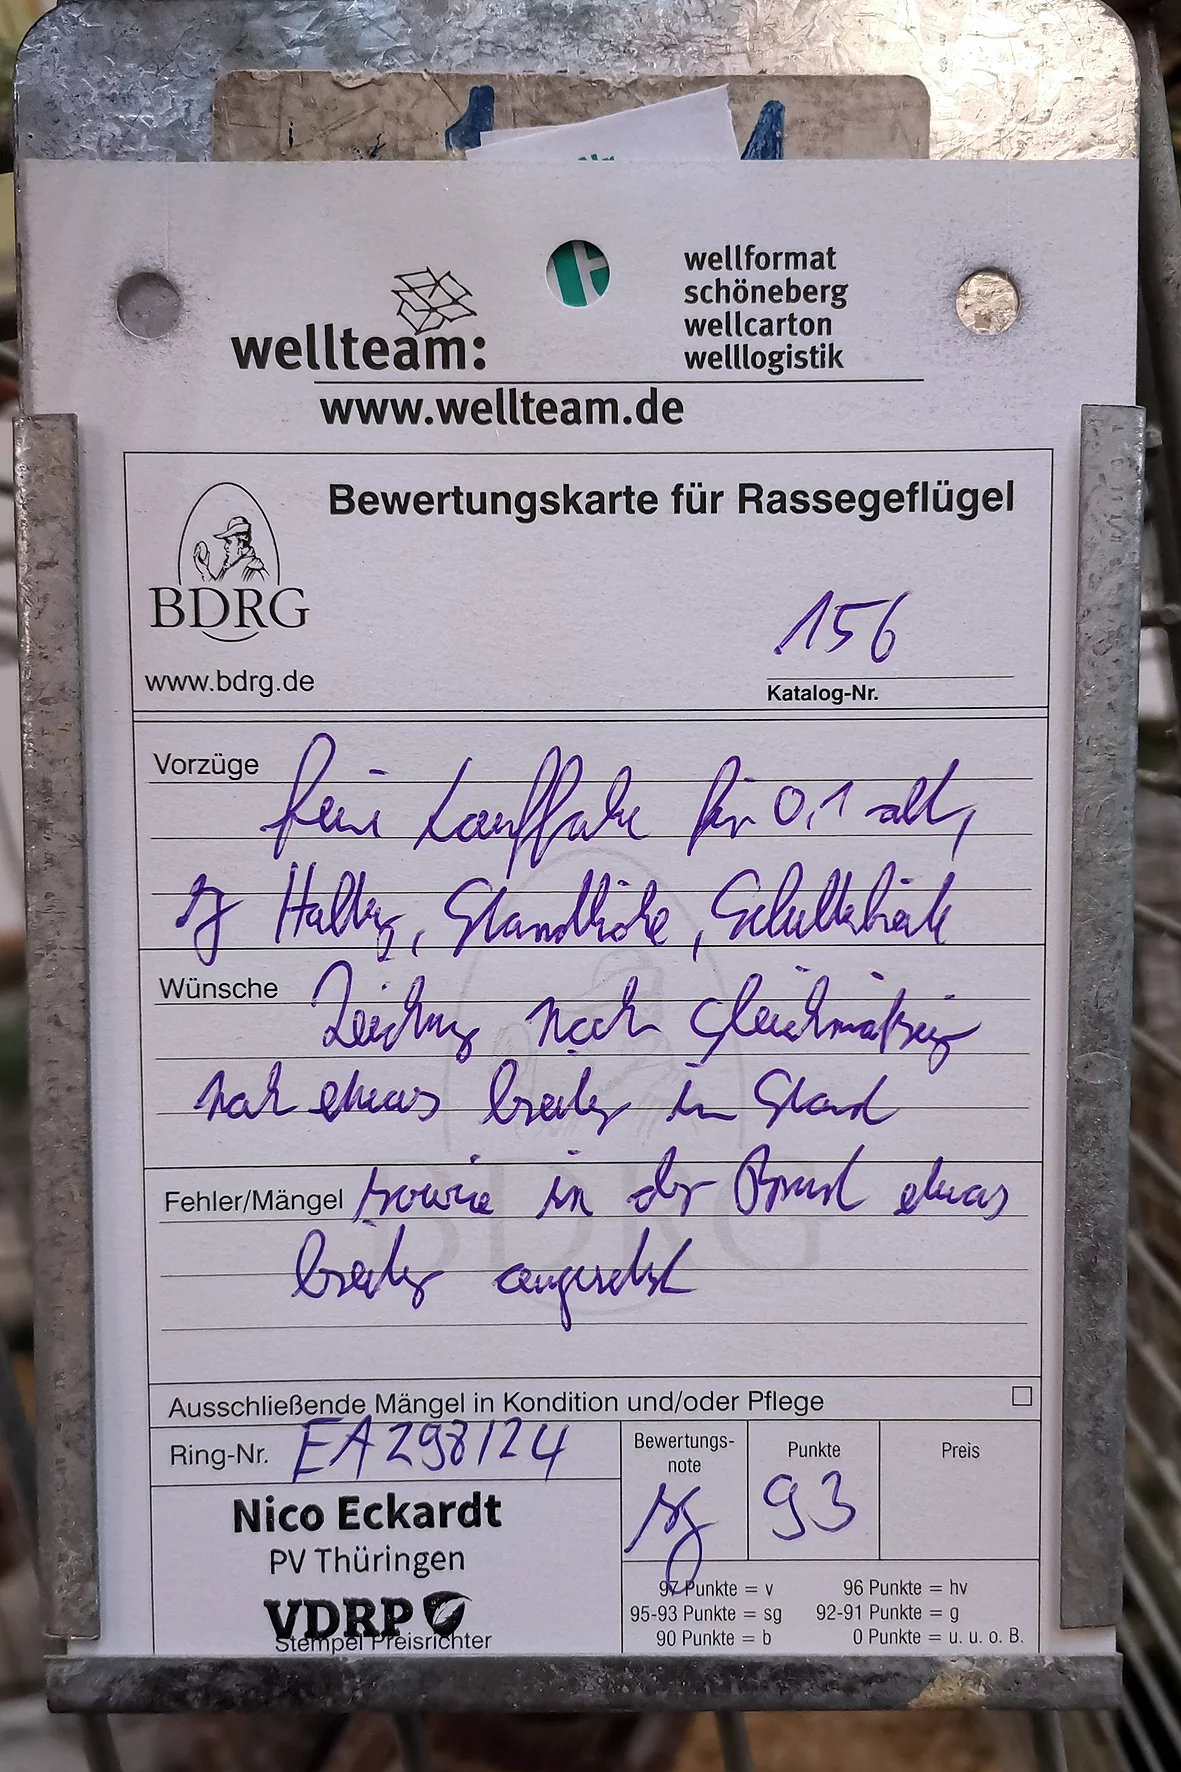 wellteam:
wellformat
schöneberg
wellcarton
welllogistik
www.wellteam.de
Bewertungskarte für Rassegeflügel
BDRG
www.bdrg.de
156
Katalog-Nr.
Vorzüge feine Lauffarbe für 0,1 alt,
sg Haltg, Standhöhe, Schulterbreite
Wünsche Zeichng noch gleichmäßig
noch etwas breiter im Stand
Fehler/Mängel sowie in der Brust etwas
breiter angesetzt
Ausschließende Mängel in Kondition und/oder Pflege
Ring-Nr. EA 298/24
Bewertungs-
note
sg
Punkte
93
Preis
Nico Eckardt
PV Thüringen
VDRP
Stempel Preisrichter
97 Punkte = v 96 Punkte = hv
95-93 Punkte = sg 92-91 Punkte = g
90 Punkte = b 0 Punkte = u. u. o. B.